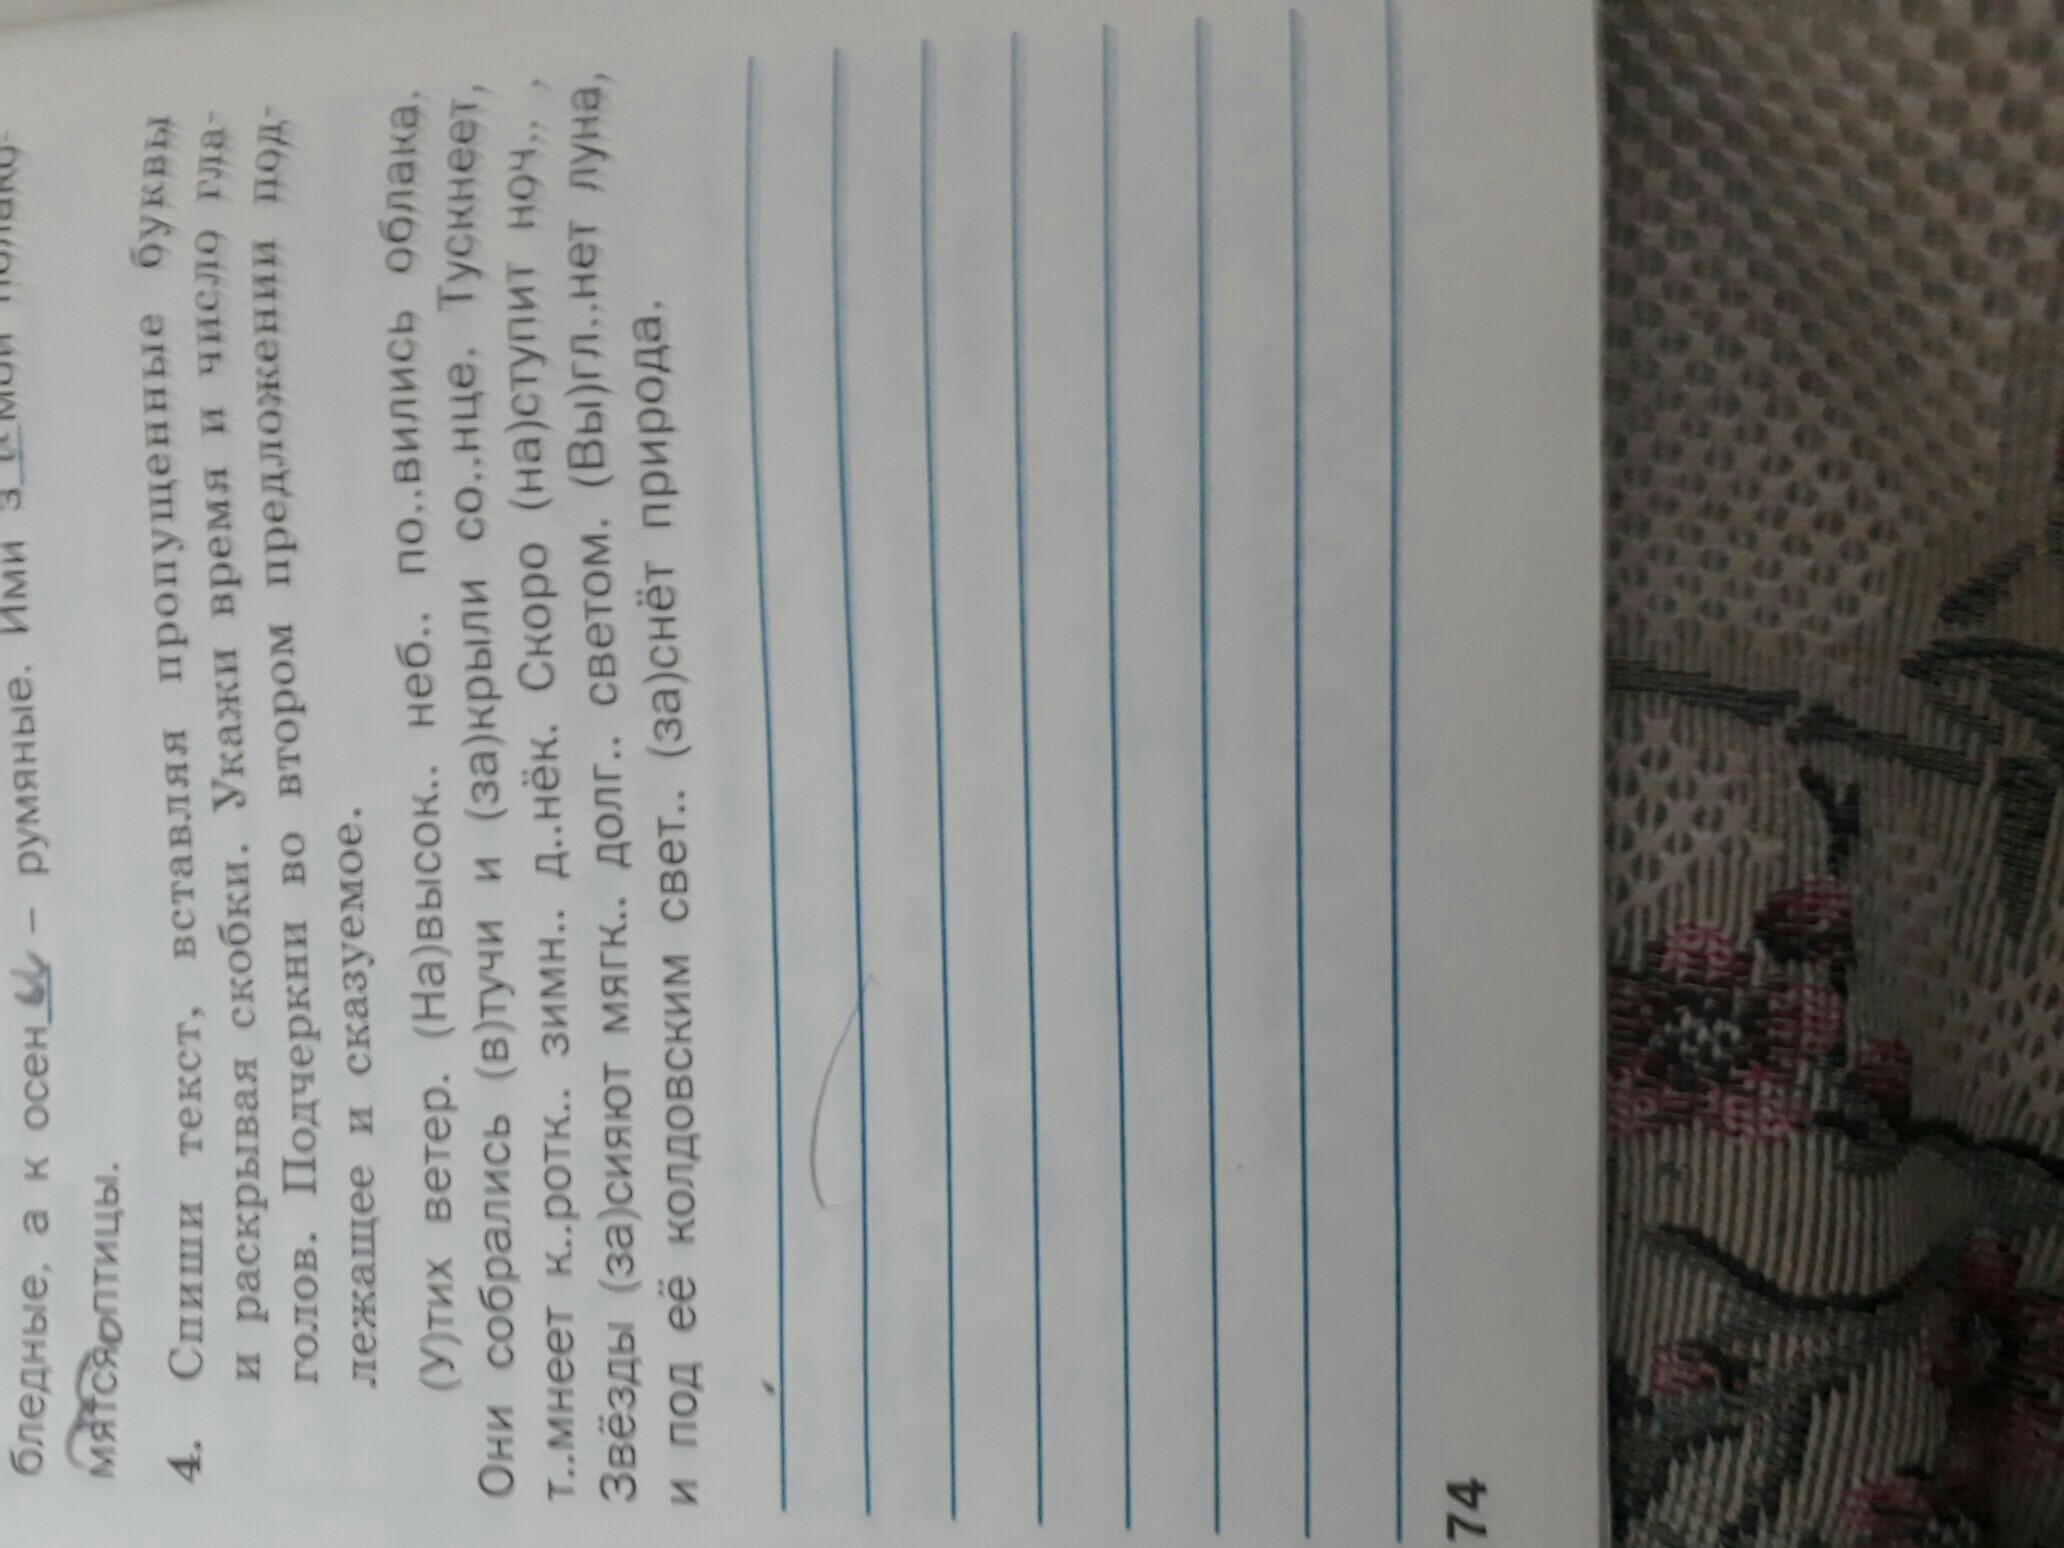 бледные, а к осен и – румяные. Ими з и мой полако-
мятся птицы.
4. Спиши текст, вставляя пропущенные буквы
и раскрывая скобки. Укажи время и число гла-
голов. Подчеркни во втором предложении под-
лежащее и сказуемое.
(У)тих ветер. (На)высок.. неб.. по..вились облака.
Они собрались (в)тучи и (за)крыли со..нце. Тускнеет,
т..мнеет к..ротк.. зимн.. д..нёк. Скоро (на)ступит ноч.. ,
Звёзды (за)сияют мягк.. долг.. светом. (Вы)гл..нет луна,
и под её колдовским свет.. (за)снёт природа.
74